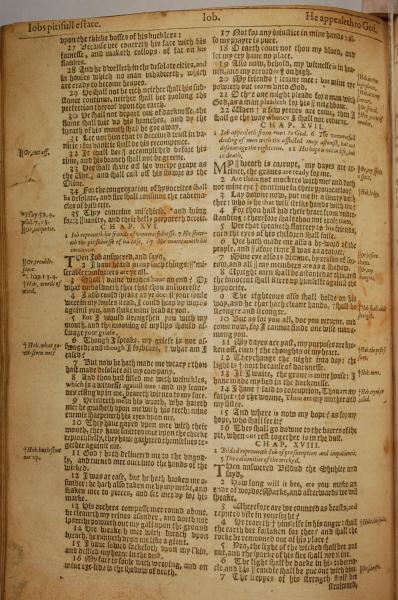 Iobs pitifull estate.
Iob.
He appealeth to God.
upon the thicke bosses of his bucklers:
27 Because he covereth his face with his
fatnesse, and maketh collops of fat on his
flankes.
28 And he dwelleth in desolate cities, and
in houses which no man inhabiteth, which
are ready to become heaps.
29 He shall not be rich, neither shall his sub-
stance continue, neither shall he prolong the
perfection thereof upon the earth.
30 He shall not depart out of darkenesse, the
flame shall dry up his branches, and by the
breath of his mouth shall he goe away.
31 Let not him that is deceived trust in va-
nitie: for vanitie shall be his recompence.
32 It shall be accomplished before his
time, and his branch shall not be greene.
33 He shall shake off his unripe grape as
the Vine, and shall cast off his flowre as the
Olive.
34 For the congregation of hypocrites shall
be desolate, and fire shall consume the taberna-
cles of briberie.
35 They conceive mischiefe, and bring
forth vanity, and their belly prepareth deceit.
CHAP. XVI.
Then Iob answered, and said,
2 I have heard many such things: mi-
serable comforters are ye all.
3 Shall vaine words have an end? Or
what emboldeneth thee that thou answerest?
4 I also could speake as ye doe: if your soule
were in my soules stead, I could heap up words
against you, and shake mine head at you.
5 But I would strengthen you with my
mouth, and the mooving of my lips should as-
swage your griefe.
6 Though I speake, my griefe is not as-
swaged: and though I forbeare, what am I
eased?
7 But now he hath made me weary: thou
hast made desolate all my company.
8 And thou hast filled me with wrinckles,
which is a witnesse against me: and my leane-
nes rising up in me, beareth witnes to my face.
9 He teareth me in his wrath, who hateth
me: he gnasheth upon me with his teeth; mine
enemie sharpeneth his eyes upon me.
10 They have gaped upon me with their
mouth, they have smitten me upon the cheeke
reproachfully, they have gathered themselves to-
gether against me.
11 God hath delivered me to the ungod-
ly, and turned me over into the hands of the
wicked.
12 I was at ease, but he hath broken me a-
sunder: he hath also taken me by my necke, and
shaken me to pieces, and set me up for his
marke.
13 His archers compasse me round about,
he cleaveth my reines asunder, and doeth not
spare; he powreth out my gall upon the ground.
14 He breaketh me with breach upon
breach, he runneth upon me like a giant.
15 I have sowed sackcloth upon my skin,
and defiled my horne in the dust.
16 My face is foule with weeping, and on
mine eye-lids is the shadow of death.
17 Not for any injustice in mine hands: al-
so my prayer is pure.
18 O earth cover not thou my blood, and
let my cry have no place.
19 Also now, behold, my witnesse is in hea-
ven, and my record is on high.
20 My friends scorne me: but mine eye
powreth out teares unto God.
21 O that one might pleade for a man with
God, as a man pleadeth for his neighbour.
22 When a few yeeres are come, then I
shall go the way whence I shall not returne.
CHAP. XVII.
1 Iob appealeth from men to God. 6 The unmercifull
dealing of men with the afflicted may astonish, but not
discourage the righteous. 11 His hope is not in life, but
in death.
My breath is corrupt, my dayes are ex-
tinct, the graves are ready for me.
2 Are there not mockers with me? and doth
not mine eye continue in their provocation?
3 Lay downe now, put me in a surety with
thee: who is he that will strike hands with me?
4 For thou hast hid their heart from under-
standing: therefore shalt thou not exalt them.
5 He that speaketh flattery to his friends,
even the eyes of his children shall faile.
6 He hath made me also a by-word of the
people, and afore time I was as a tabret.
7 Mine eye also is dimme, by reason of sor-
row, and all my members are as a shadow.
8 Upright men shall be astonied at this, and
the innocent shall stirre up himselfe against the
hypocrite.
9 The righteous also shall hold on his
way, and he that hath cleane hands, shall be
stronger and stronger.
10 But as for you all, doe you returne, and
come now, for I cannot finde one wise man a-
mong you.
11 My dayes are past, my purposes are bro-
ken off, even the thoughts of my heart.
12 They change the night into day: the
light is short because of darkenesse.
13 If I waite, the grave is mine house: I
have made my bed in the darkenesse.
14 I have said to corruption, Thou art my
father: to the worme, Thou art my mother and
my sister.
15 And where is now my hope? as for my
hope, who shall see it?
16 They shall go downe to the barres of the
pit, when our rest together is in the dust.
CHAP. XVIII.
1 Bildad reproveth Iob of presumption and impatience.
5 The calamities of the wicked.
Then answered Bildad the Shuhite and
sayd,
2 How long will it bee, ere you make an
ende of words? Marke, and afterwards we will
speake.
3 Wherefore are we counted as beasts, and
reputed vile in your sight?
4 He teareth himselfe in his anger: shall
the earth bee forsaken for thee? and shall the
rocke be removed out of his place?
5 Yea, the light of the wicked shall bee put
out, and the sparke of his fire shall not shine.
6 The light shall be darke in his taberna-
cle, and his candle shall be put out with him.
7 The steppes of his strength shall bee
straitened,